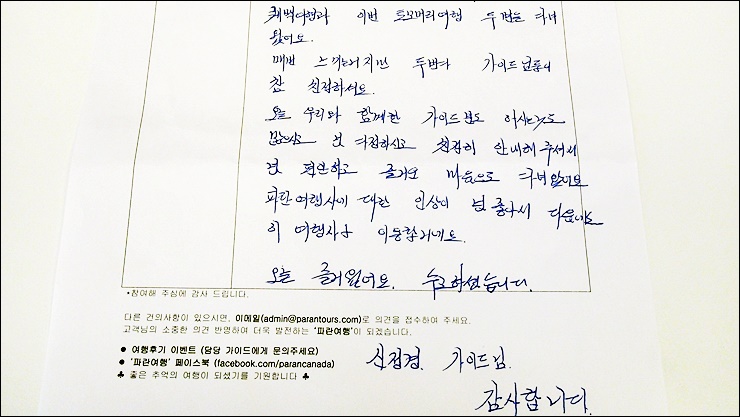 퀘백여행과 이번 토모머리여행 두번을 다녀
왔어요.
매번 느끼는거지만 두번다 가이드님들이
참 친절하세요.
오늘 우리와 함께한 가이드님도 인사성도
많으시고 넘 다정하시고 친절히 안내해주셔서
넘 편안하고 즐거운 마음으로 다녀왔어요
파란여행사에 대한 인상이 넘 좋아서 다음에도
이 여행사만 이용할거예요.
오늘 즐거웠어요. 수고하셨습니다.
*참여해 주심에 감사 드립니다.
다른 건의사항이 있으시면, 이메일(admin@parantours.com)로 의견을 접수하여 주세요.
고객님의 소중한 의견 반영하여 더욱 발전하는 '파란여행'이 되겠습니다.
● 여행후기 이벤트 (담당 가이드에게 문의주세요)
● '파란여행' 페이스북 (facebook.com/parancanada)
♣ 좋은 추억의 여행이 되셨기를 기원합니다 ♣
신정경. 가이드님.
감사합니다.